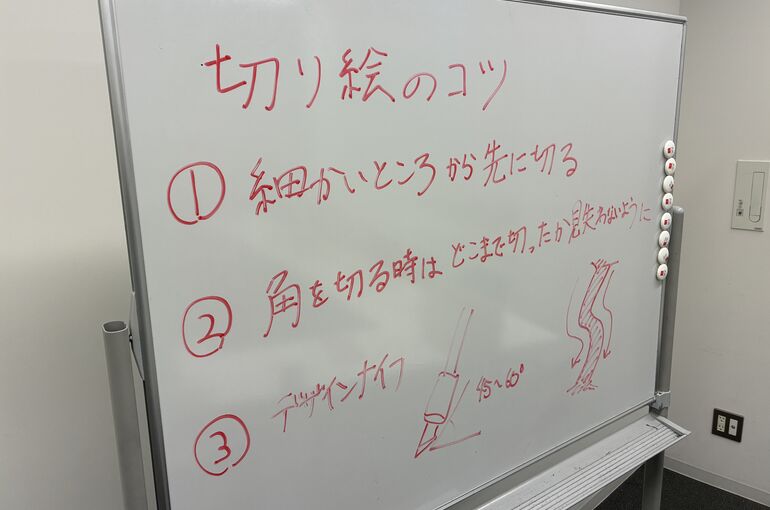 切り絵のコツ
① 細かいところから先に切る
② 角を切る時は どこまで切ったか見失わないように
③ デザインナイフ
45~60°